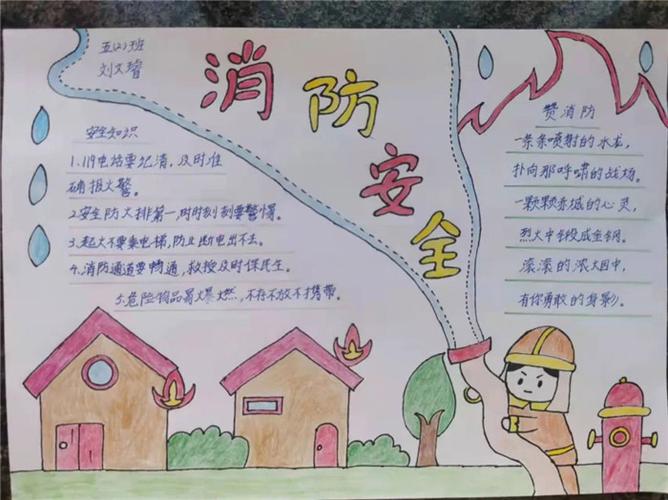 五(2)班
刘文睿
消防安全
安全知识
1.119电话要记清,及时准
确报火警。
2.安全防火排第一,时时刻刻要警惕。
3.起火不要乘电梯,防止断电出不去。
4.消防通道要畅通,救授及时保民生。
5.危险物品易爆燃,不存不放不携带。
赞消防
一条条喷射的水龙,
扑向那呼啸的战场。
一颗颗赤诚的心灵,
烈火中锻成金钢。
滚滚的浓烟中,
有你勇敢的身影。